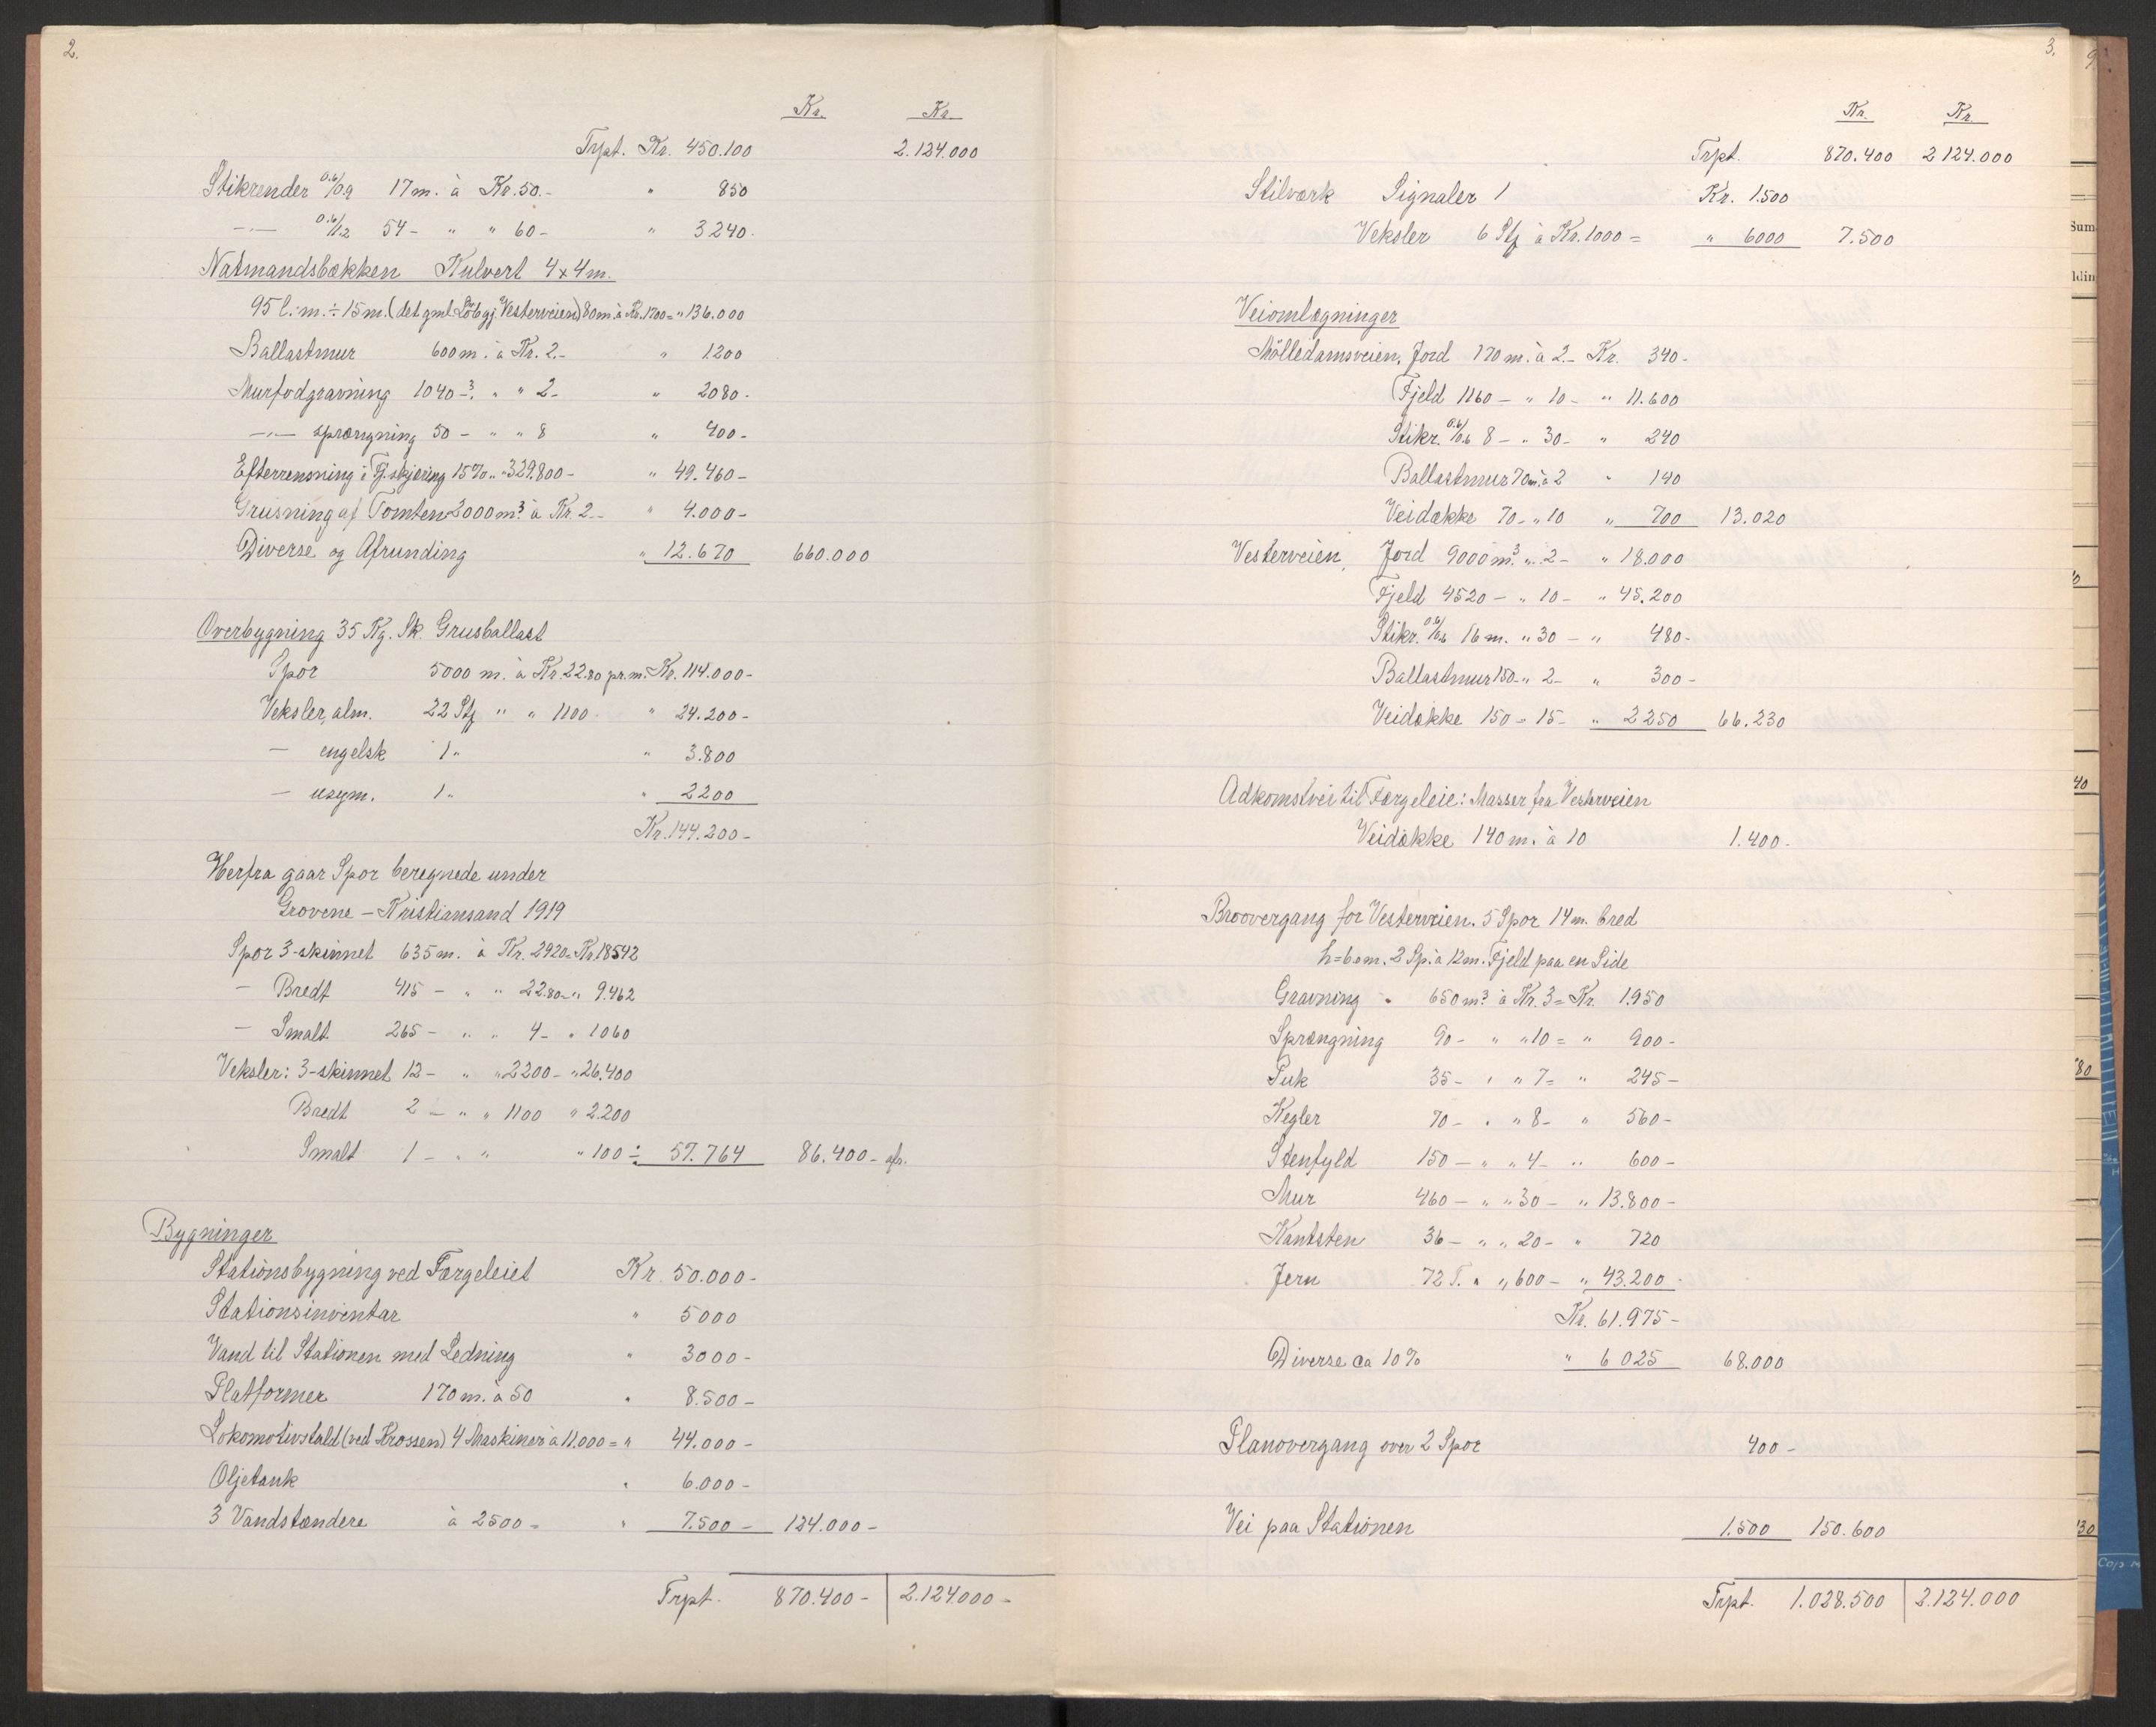 2.
Kr. Kr.
Trpt. Kr. 450.100 2.124.000
Stikrender 0.6/0.9 17 m. à Kr. 50.- " 850
—"— 0.6/1.2 54 - " " 60 - " 3240.
Natmandsbækken Kulvert 4 x 4 m.
95 l.m. ÷ 15 m. (det gml. Löb gj. Vesterveien) 80 m. à Kr. 1700 = " 136.000
Ballastmur 600 m. à Kr. 2.- " 1200
Murfodgravning 1040 -³. " " 2 - " 2080.
—"— sprængning 50 - " " 8 " 400 -
Efterrensning i Fj.skjæring 15% " " 329.800 - " 49.460 -
Grusning af Tomten 2000 m³. à Kr. 2.- " 4.000 -
Diverse og Afrunding " 12.670 660.000
Overbygning 35 Kg. Sk. Grusballast
Spor 5000 m. à Kr. 22.80 pr. m. Kr. 114.000 -
Veksler, alm. 22 Stj " " 1100 " 24.200 -
— engelsk 1 " " 3.800
— usym. 1 " " 2200
Kr. 144.200 -
Herfra gaar Spor beregnede under
Grovene - Kristiansand 1919
Spor 3-skinnet 635 m. à Kr. 29.20 = Kr. 18542
— Bredt 415 - " " 22.80 = " 9.462
— Smalt 265 - " " 4 - " 1060
Veksler: 3-skinnet 12 - " " 2200 - " 26.400
Bredt 2 - " " 1100 " 2.200
Smalt 1 - " " " 100 ÷ 57.764 86.400 - afr.
Bygninger
Stationsbygning ved Færgeleiet Kr. 50.000 -
Stationsinventar " 5000
Vand til Stationen med Ledning " 3000 -
Platformer 170 m. à 50 " 8.500 -
Lokomotivstald (ved Krossen) 4 Maskiner à 11.000 = " 44.000 -
Oljetank " 6.000 -
3 Vandstændere à 2500 = " 7.500 - 124.000 -
Trpt. 870.400 - 2.124.000 -
3.
Kr. Kr.
Trpt. 870.400 2 124.000
Stilværk Signaler 1 Kr. 1.500
Veksler 6 Stj à Kr. 1000 = " 6000 7.500
Veiomlægninger
Mölledamsveien, Jord 170 m. à 2.- Kr. 340 -
Fjeld 1160 - " 10 - " 11.600
Stikr. 0.6/0.6 8 - " 30 - " 240
Ballastmur 70 m. à 2 " 140
Veidække 70 - " 10 " 700 13.020
Vesterveien, Jord 9000 m³. " 2 - " 18.000
Fjeld 4520 - " 10 - " 45.200
Stikr. 0.6/0.6 16 m. " 30 - " 480 -
Ballastmur 150 - " 2 - " 300 -
Veidække 150 - 15 - " 2250 66.230
Adkomstvei til Færgeleie: Masser fra Vesterveien
Veidække 140 m. à 10 1.400 -
Broovergang for Vesterveien. 5 Spor 14 m. bred
h = 6.0 m. 2 Sp. à 12 m. Fjeld paa en Side
Gravning - 650 m³. à Kr. 3 = Kr. 1.950
Sprængning 90 - " " 10 = " 900 -
Puk 35 - " " 7 = " 245 -
Kegler 70 - " " 8 - " 560 -
Stenfyld 150 - " " 4 - " 600 -
Mur 460 - " " 30 - " 13.800 -
Kantsten 36 - " " 20 - " 720
Jern 72 T. " " 600 - " 43.200 -
Kr. 61.975 -
Diverse ca 10% " 6 025 68.000
Planovergang over 2 Spor 400 -
Vei paa Stationen 1.500 150.600
Trpt. 1.028.500 2.124.000
9
Sum
ldin
40
80
30
Cop